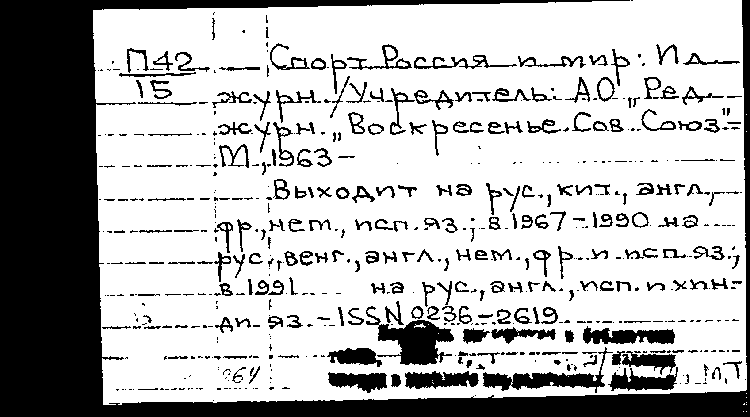 П42
15
Спорт. Россия и мир: Ил.
журн. /Учредитель: АО „Ред.
журн. „Воскресенье. Сов. Союз"-
М., 1963-
Выходит на рус., кит., англ.,
фр., нем., исп. яз.; в 1967-1990 на
рус., венг., англ., нем., фр. и исп. яз.;
в 1991 на рус., англ., исп. и хин-
ди яз. - ISSN 0236-2619.
в библиотеке
964